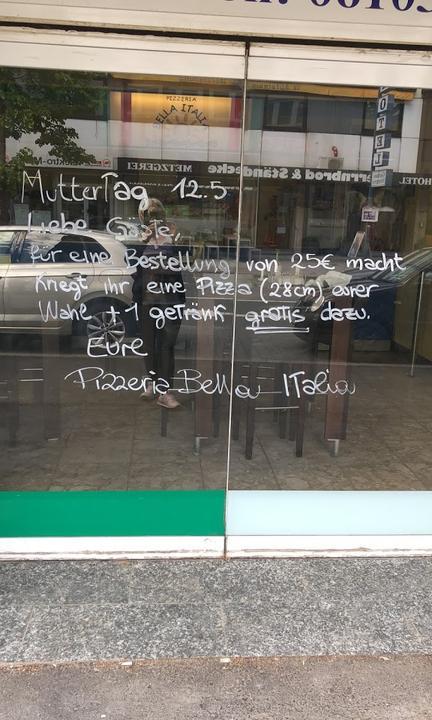 06103
PIZZERIA
ELLA ITALI
METZGEREI
Herrnbrod & Ständecke
HOTEL
HOTEL
MutterTag 12.5
Liebe Gäste,
für eine Bestellung von 25€ macht
Kriegt ihr eine Pizza (28cm) eurer
Wahl +1 getränk gratis dazu.
Eure
Pizzeria Bella ITalia